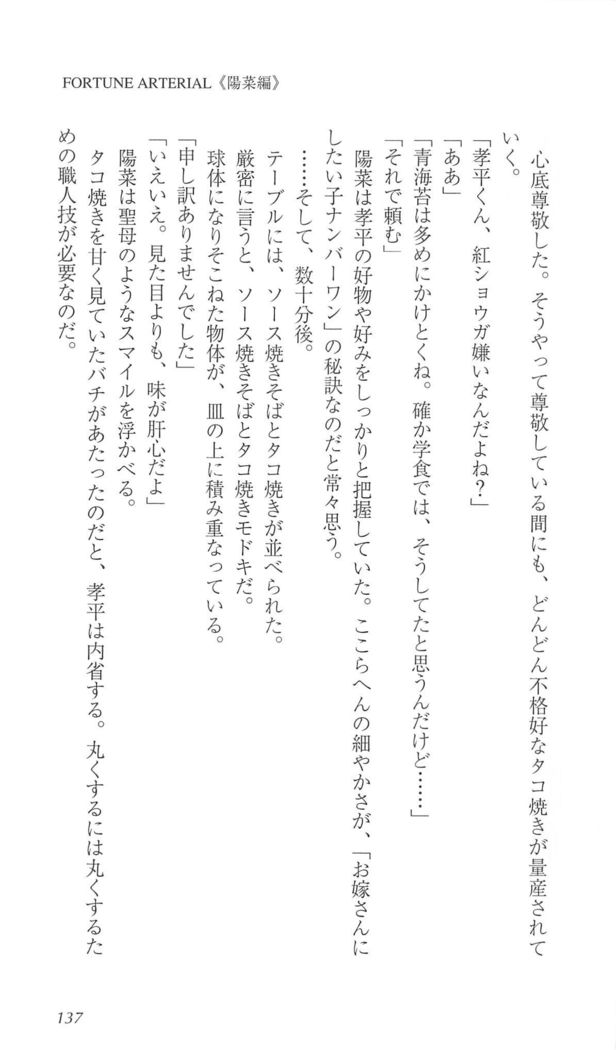 FORTUNE ARTERIAL《陽菜編》
　心底尊敬した。そうやって尊敬している間にも、どんどん不格好なタコ焼きが量産されて
いく。
「孝平くん、紅ショウガ嫌いなんだよね？」
「ああ」
「青海苔は多めにかけとくね。確か学食では、そうしてたと思うんだけど……」
「それで頼む」
　陽菜は孝平の好物や好みをしっかりと把握していた。ここらへんの細やかさが、「お嫁さんに
したい子ナンバーワン」の秘訣なのだと常々思う。
　……そして、数十分後。
　テーブルには、ソース焼きそばとタコ焼きが並べられた。
　厳密に言うと、ソース焼きそばとタコ焼きモドキだ。
　球体になりそこねた物体が、皿の上に積み重なっている。
「申し訳ありませんでした」
「いえいえ。見た目よりも、味が肝心だよ」
　陽菜は聖母のようなスマイルを浮かべる。
　タコ焼きを甘く見ていたバチがあたったのだと、孝平は内省する。丸くするには丸くするた
めの職人技が必要なのだ。
137